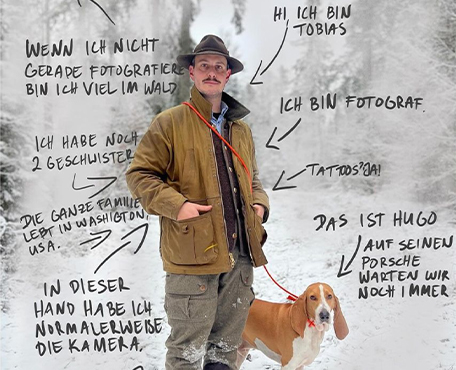 HI, ICH BIN
TOBIAS
WENN ICH NICHT
GERADE FOTOGRAFIERE
BIN ICH VIEL IM WALD.
ICH BIN FOTOGRAF.
ICH HABE NOCH
2 GESCHWISTER
TATTOOS? JA!
DIE GANZE FAMILIE
LEBT IN WASHINGTON
USA.
DAS IST HUGO
AUF SEINEN
PORSCHE
WARTEN WIR
NOCH IMMER
IN DIESER
HAND HABE ICH
NORMALERWEISE
DIE KAMERA.